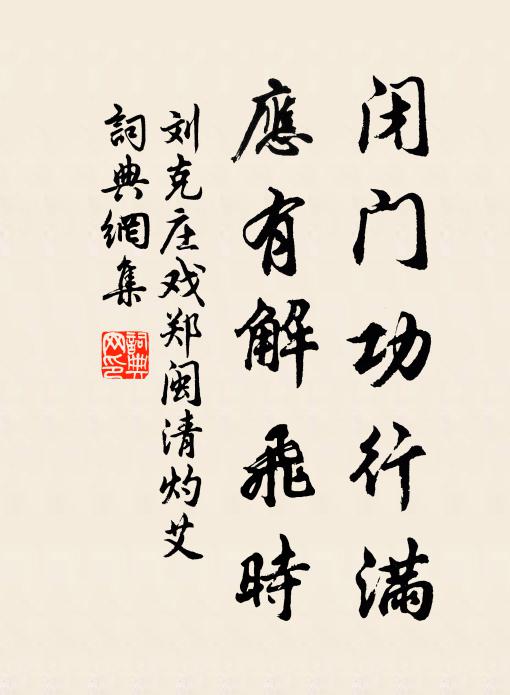 闭门功行满
應有解飛時
刘克庄戏郑闽清灼艾
詞典網集
詞典網印